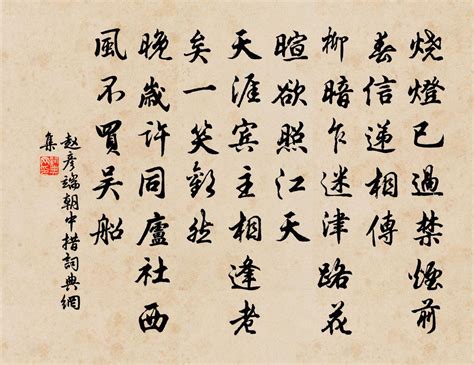 燒燈已過禁煙前
春信遞相傳
柳暗乍迷津路花
暄欲照江天
天涯賓主相逢老
矣一笑歡然
晚歲許同廬社西
風不買吳船
趙彥端朝中措詞典網
集